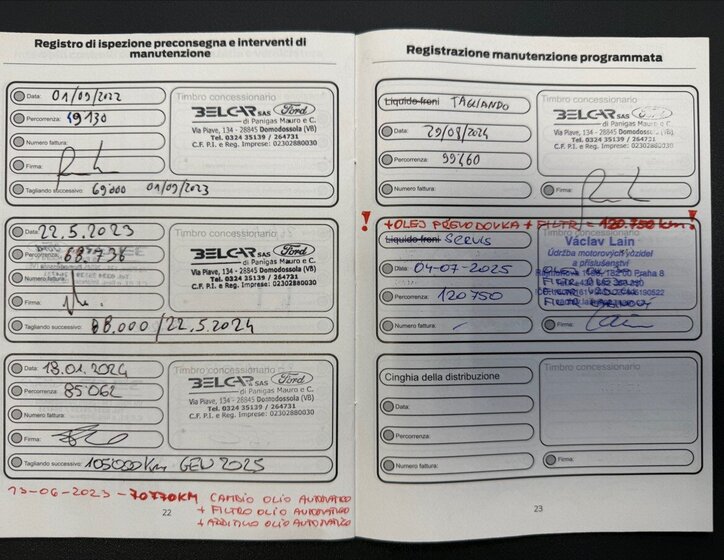 Registro di ispezione preconsegna e interventi di
manutenzione
Data: 01/09/2022
Percorrenza: 49130
Numero fattura:
Firma:
Tagliando successivo: 69'000 01/09/2023
Timbro concessionario
BELCAR SAS Ford
di Panigas Mauro e C.
Via Piave, 134 - 28845 Domodossola (VB)
Tel. 0324 35139 / 264731
C.F. P.I. e Reg. Imprese: 02302880030
Data: 22.5.2023
Percorrenza: 68.736
Numero fattura:
Firma:
Tagliando successivo: 88.000 / 22.5.2024
BELCAR SAS Ford
di Panigas Mauro e C.
Via Piave, 134 - 28845 Domodossola (VB)
Tel. 0324 35139 / 264731
C.F. P.I. e Reg. Imprese: 02302880030
Data: 18.01.2024
Percorrenza: 85'062
Numero fattura:
Firma:
Tagliando successivo: 105'000 Km GEN 2025
Timbro concessionario
BELCAR SAS Ford
di Panigas Mauro e C.
Via Piave, 134 - 28845 Domodossola (VB)
Tel. 0324 35139 / 264731
C.F. P.I. e Reg. Imprese: 02302880030
13-06-2023 - 70770KM CAMBIO OLIO AUTOMATICO
+ FILTRO OLIO AUTOMATICO
+ ADDITIVO OLIO AUTOMATICO
22
Registrazione manutenzione programmata
Liquido freni TAGLIANDO
Data: 29/08/2024
Percorrenza: 99'460
Numero fattura:
Timbro concessionario
BELCAR SAS Ford
di Panigas Mauro e C.
Via Piave, 134 - 28845 Domodossola (VB)
Tel. 0324 35139 / 264731
C.F. P.I. e Reg. Imprese: 02302880030
Firma:
! + OLEJ PŘEVODOVKA + FILTR = 120.750 km !
Liquido freni SERVIS
Data: 04-07-2025
Percorrenza: 120750
Numero fattura: -
Václav Lain
Údržba motorových vozidel
a příslušenství
182 00 Praha 8
FILTR OLEJOVÝ
FILTR KABINOVÝ
Firma:
Cinghia della distribuzione
Data:
Percorrenza:
Numero fattura:
Timbro concessionario
Firma:
23